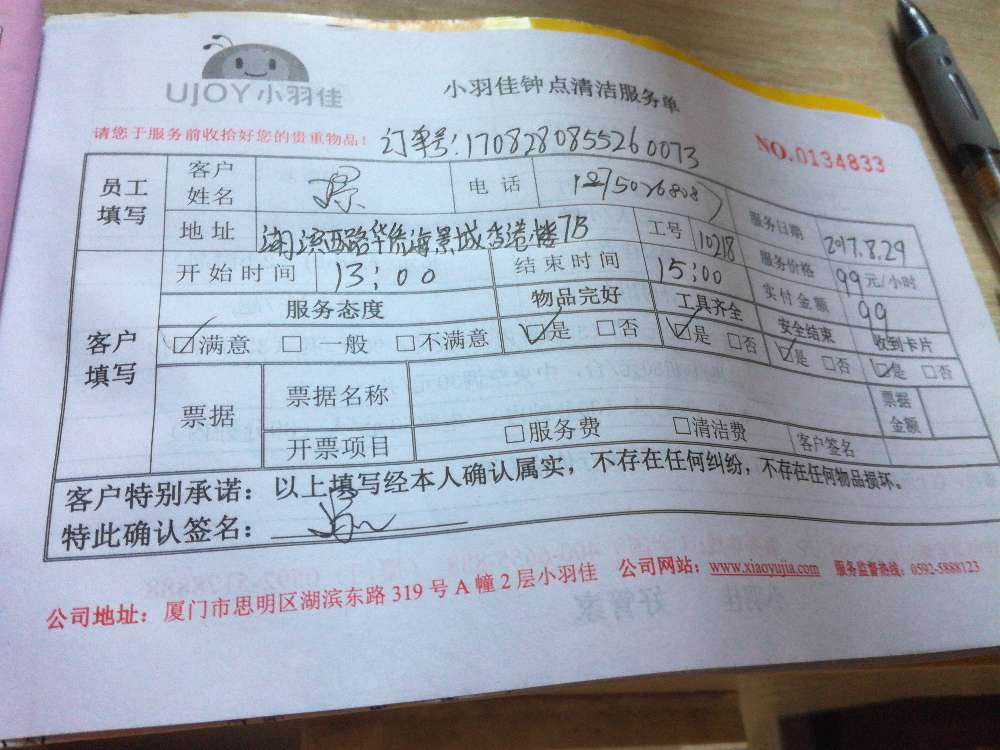 UJOY小羽佳
小羽佳钟点清洁服务单
请您于服务前收拾好您的贵重物品！
订单号:1708280855260073
NO.0134833
员工填写
客户姓名
电话
服务日期 2017.8.29
地址 湖滨西路华侨海景城香港楼7B
工号 10218
服务价格 99元/小时
客户填写
开始时间 13:00
结束时间 15:00
实付金额 99
服务态度 物品完好 工具齐全 安全结束 收到卡片
☑满意 □一般 □不满意 ☑是 □否 ☑是 □否 ☑是 □否 ☑是 □否
票据
票据名称
票据金额
开票项目 □服务费 □清洁费 客户签名
客户特别承诺：以上填写经本人确认属实，不存在任何纠纷，不存在任何物品损坏。
特此确认签名：
公司地址：厦门市思明区湖滨东路319号A幢2层小羽佳 公司网站：www.xiaoyujia.com 服务监督热线：0592-5888123